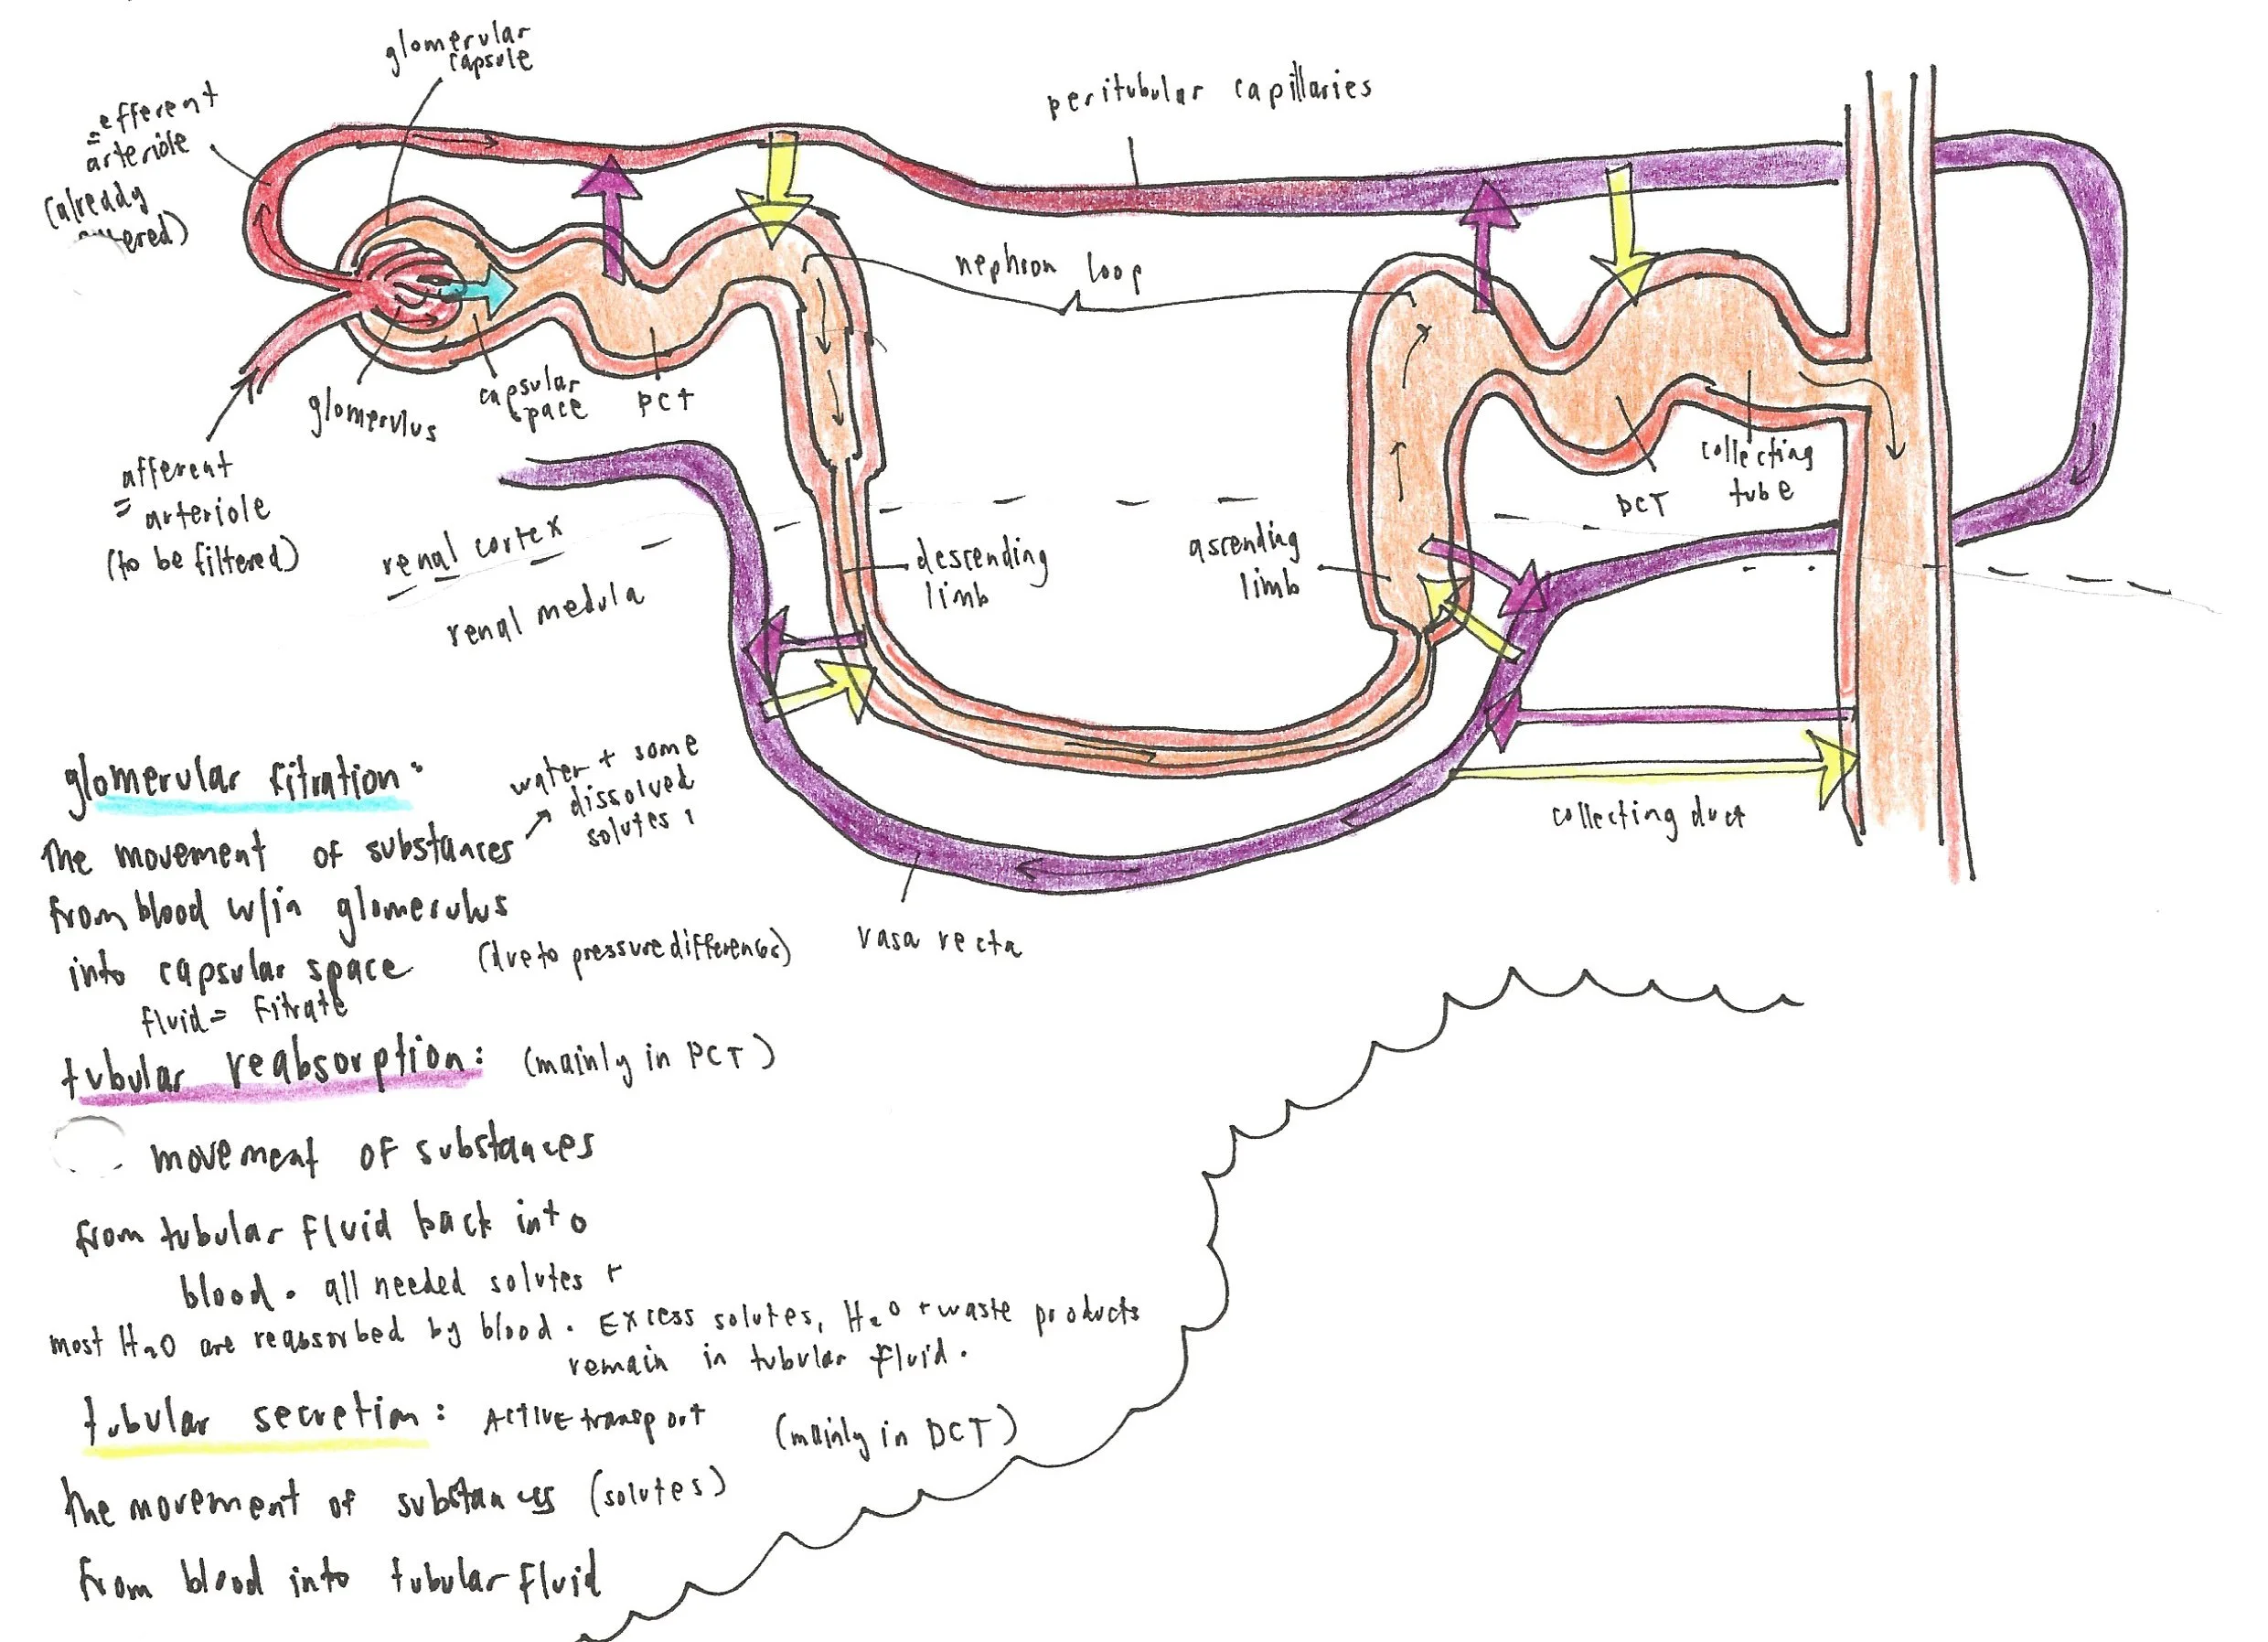 glomerular
capsule
peritubular capillaries
=efferent
arteriole
(already
nephron loop
glomerulus
capsular
space
PCT
collecting
tube
DCT
afferent
= arteriole
(to be filtered)
renal cortex
renal medula
descending
limb
ascending
limb
collecting duct
vasa recta
glomerular fitration:
water + some
dissolved
solutes
The movement of substances
from blood w/in glomerulus
into capsular space (due to pressure differences)
fluid = fitrate
tubular reabsorption: (mainly in PCT)
movement of substances
from tubular fluid back into
blood. all needed solutes +
most H2O are reabsorbed by blood. Excess solutes, H2O + waste products
remain in tubular fluid.
tubular secretion: ACTIVE transport (mainly in DCT)
The movement of substances (solutes)
from blood into tubular fluid